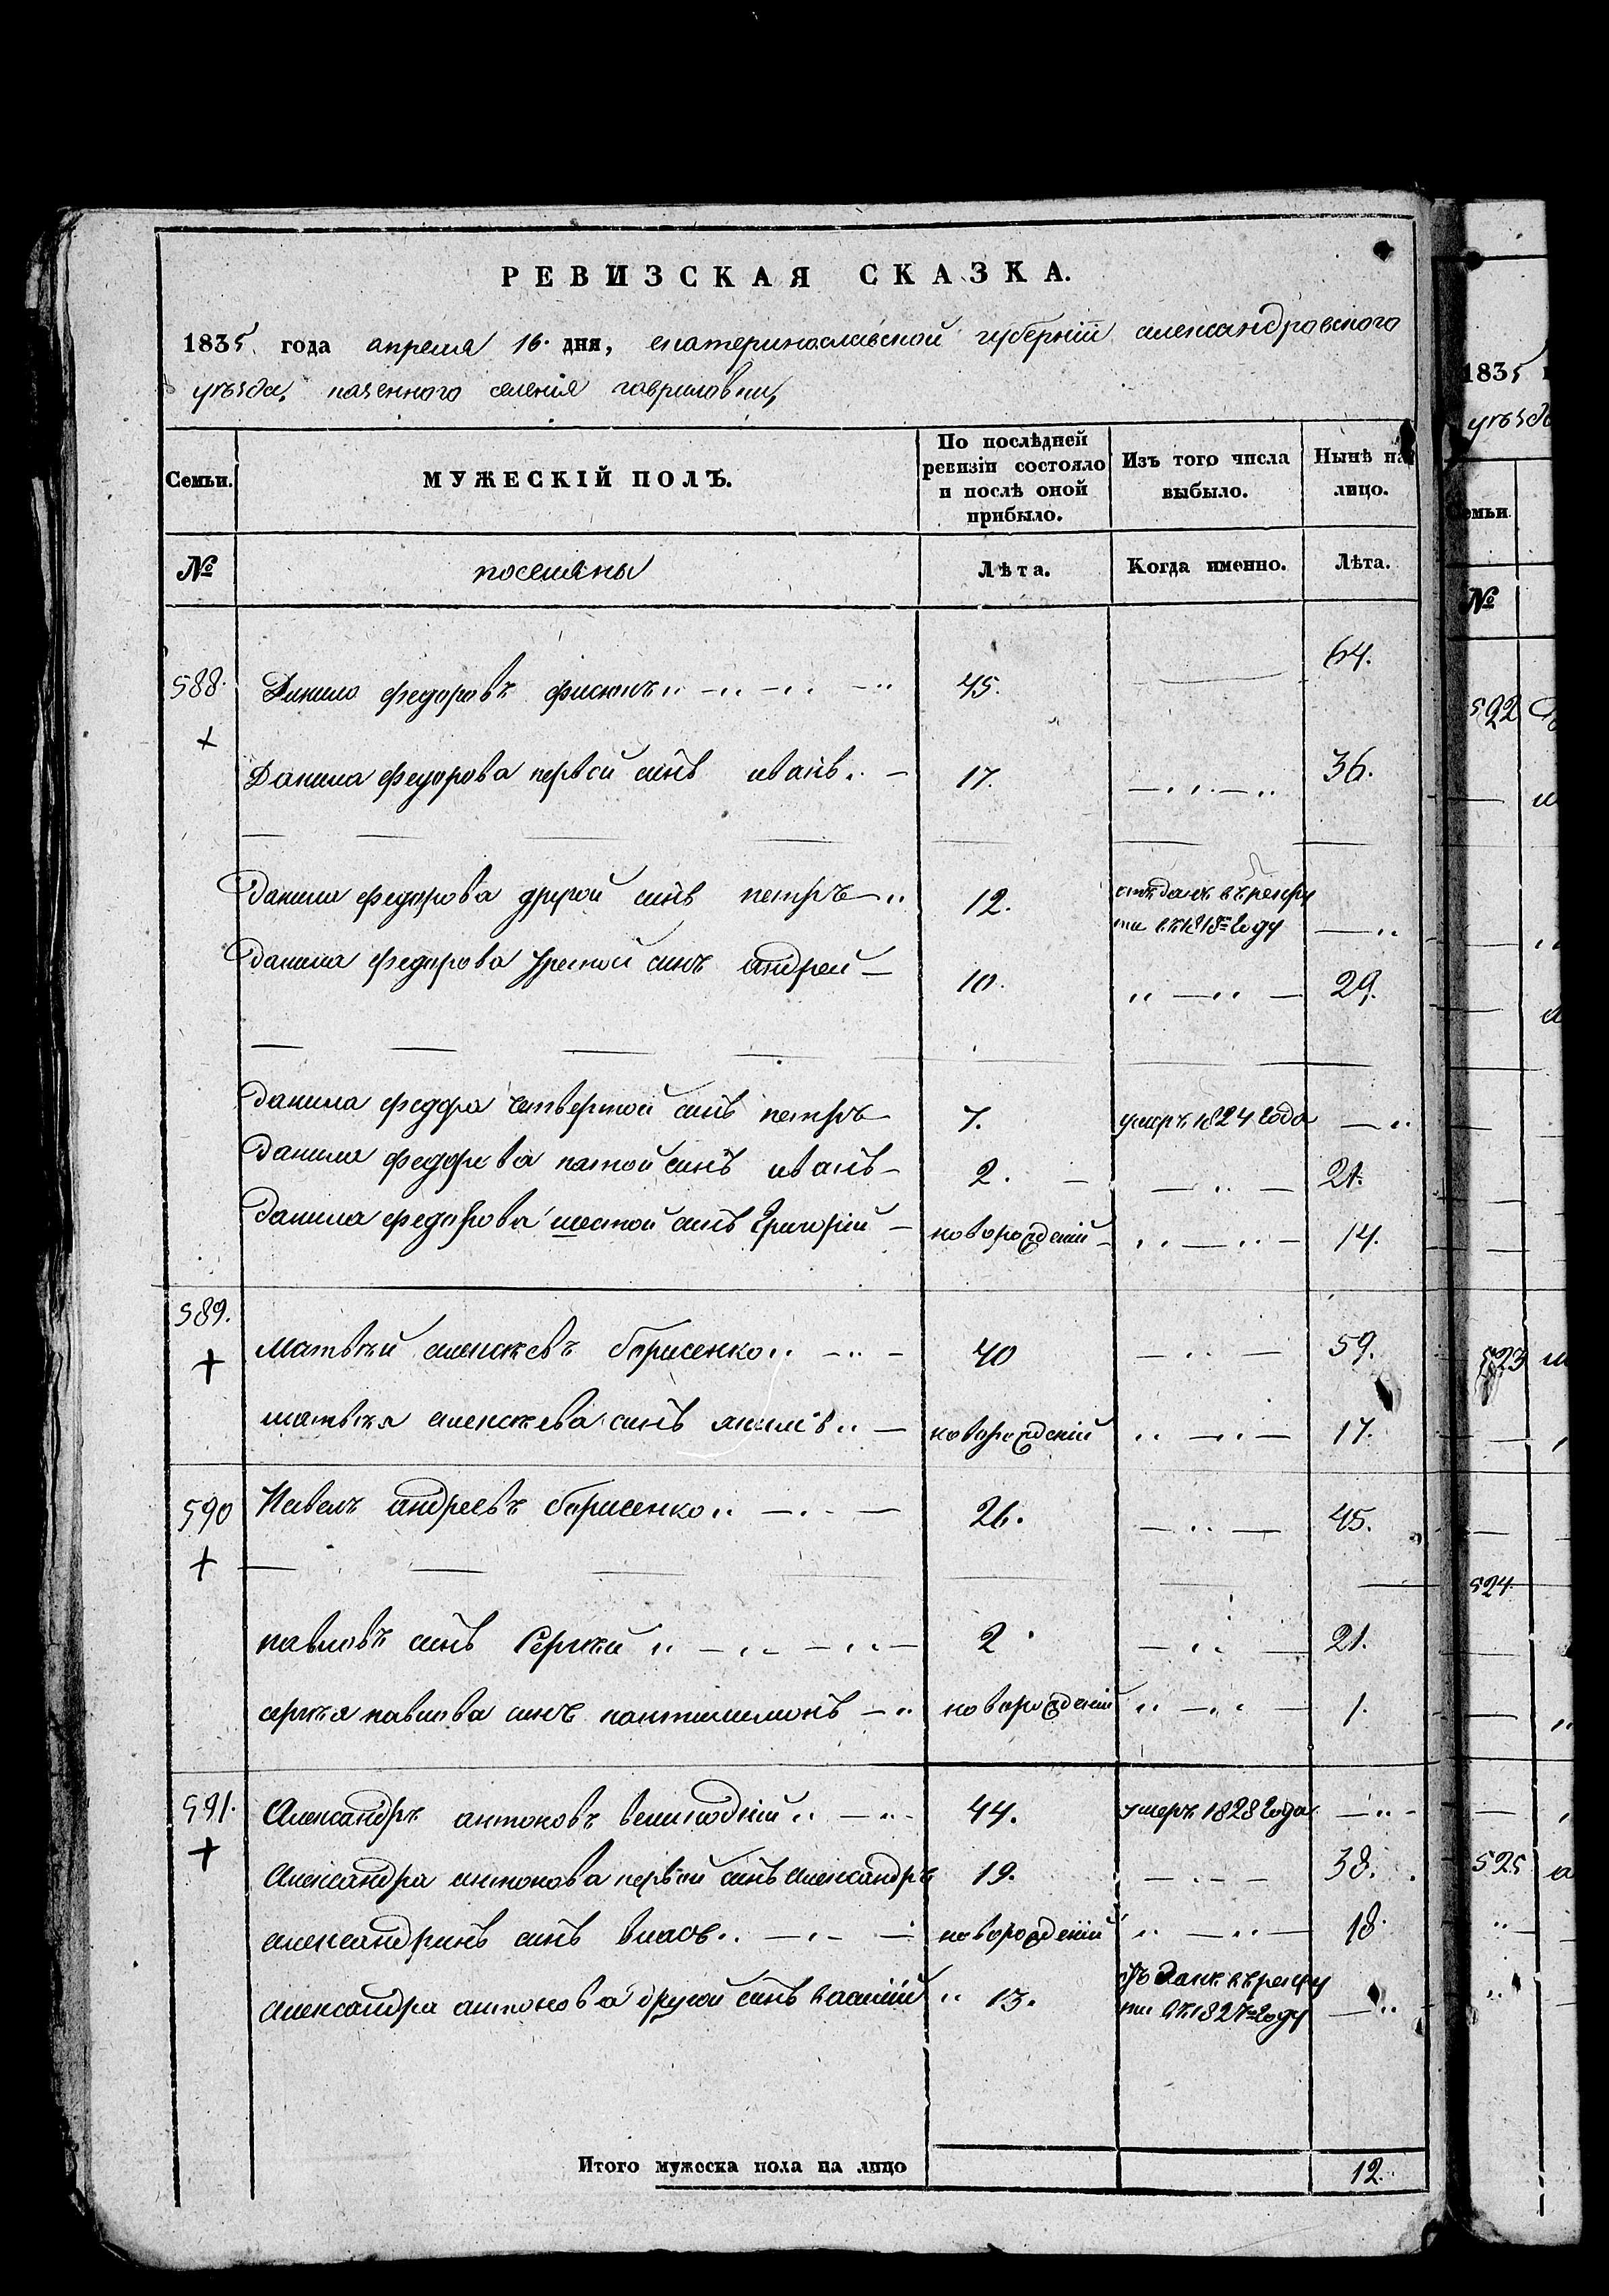 РЕВИЗСКАЯ СКАЗКА.
1835 года апреля 16. дня, екатеринославской губерніи александровского
уѣзда, казенного селенія гавриловки,
Семьи. МУЖЕСКІЙ ПОЛЪ. По послѣдней ревизіи состояло и послѣ оной прибыло. Изъ того числа выбыло. Нынѣ на лицо.
№ поселяны Лѣта. Когда именно. Лѣта.
588. Данило федоровъ 45. 64.
Данила федорова первой синъ иванъ 17. 36.
Данила федорова другой синъ петръ 12. отъданъ въ рекру
ти въ 1818=году
Данила федорова третой синъ андрей 10. 29.
Данила федора четвертой синъ петръ 7. умеръ 1824 года
Данила федорова пятой синъ иванъ 2. 21.
Данила федорова шестой синъ Григорій новорожденій 14.
589.
Матвѣй алексѣевъ борисенко 40 59.
матвѣя алексѣева синъ якимъ новорожденій 17.
590 Павелъ андреевъ борисенко 26. 45.
павловъ синъ Сергѣй 2 21.
сергѣя павлова синъ пантилимонъ новорожденій 1.
591. Александръ антоновъ великодній 44. умеръ 1828 года
Александра антонова первой синъ александръ 19. 38.
александринъ синъ власъ новорожденій 18.
александра антонова другой синъ василій 13. отъданъ въ рекру
ти въ 1827=году
Итого мужеска пола на лицо 12.
1835
уѣзд
Семьи
№
592
523
524
525